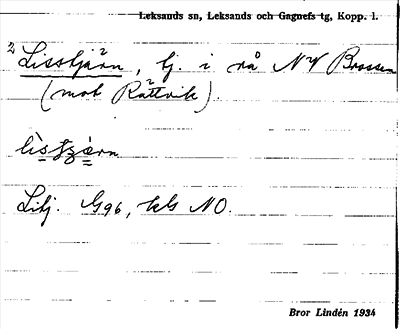 Leksands sn, Leksands och Gagnefs tg, Kopp. l.
2 Lisstjärn, tj. i rå NV Brossen
(mot Rättvik).
Litj. G96, kbl NO.
Bror Lindén 1934